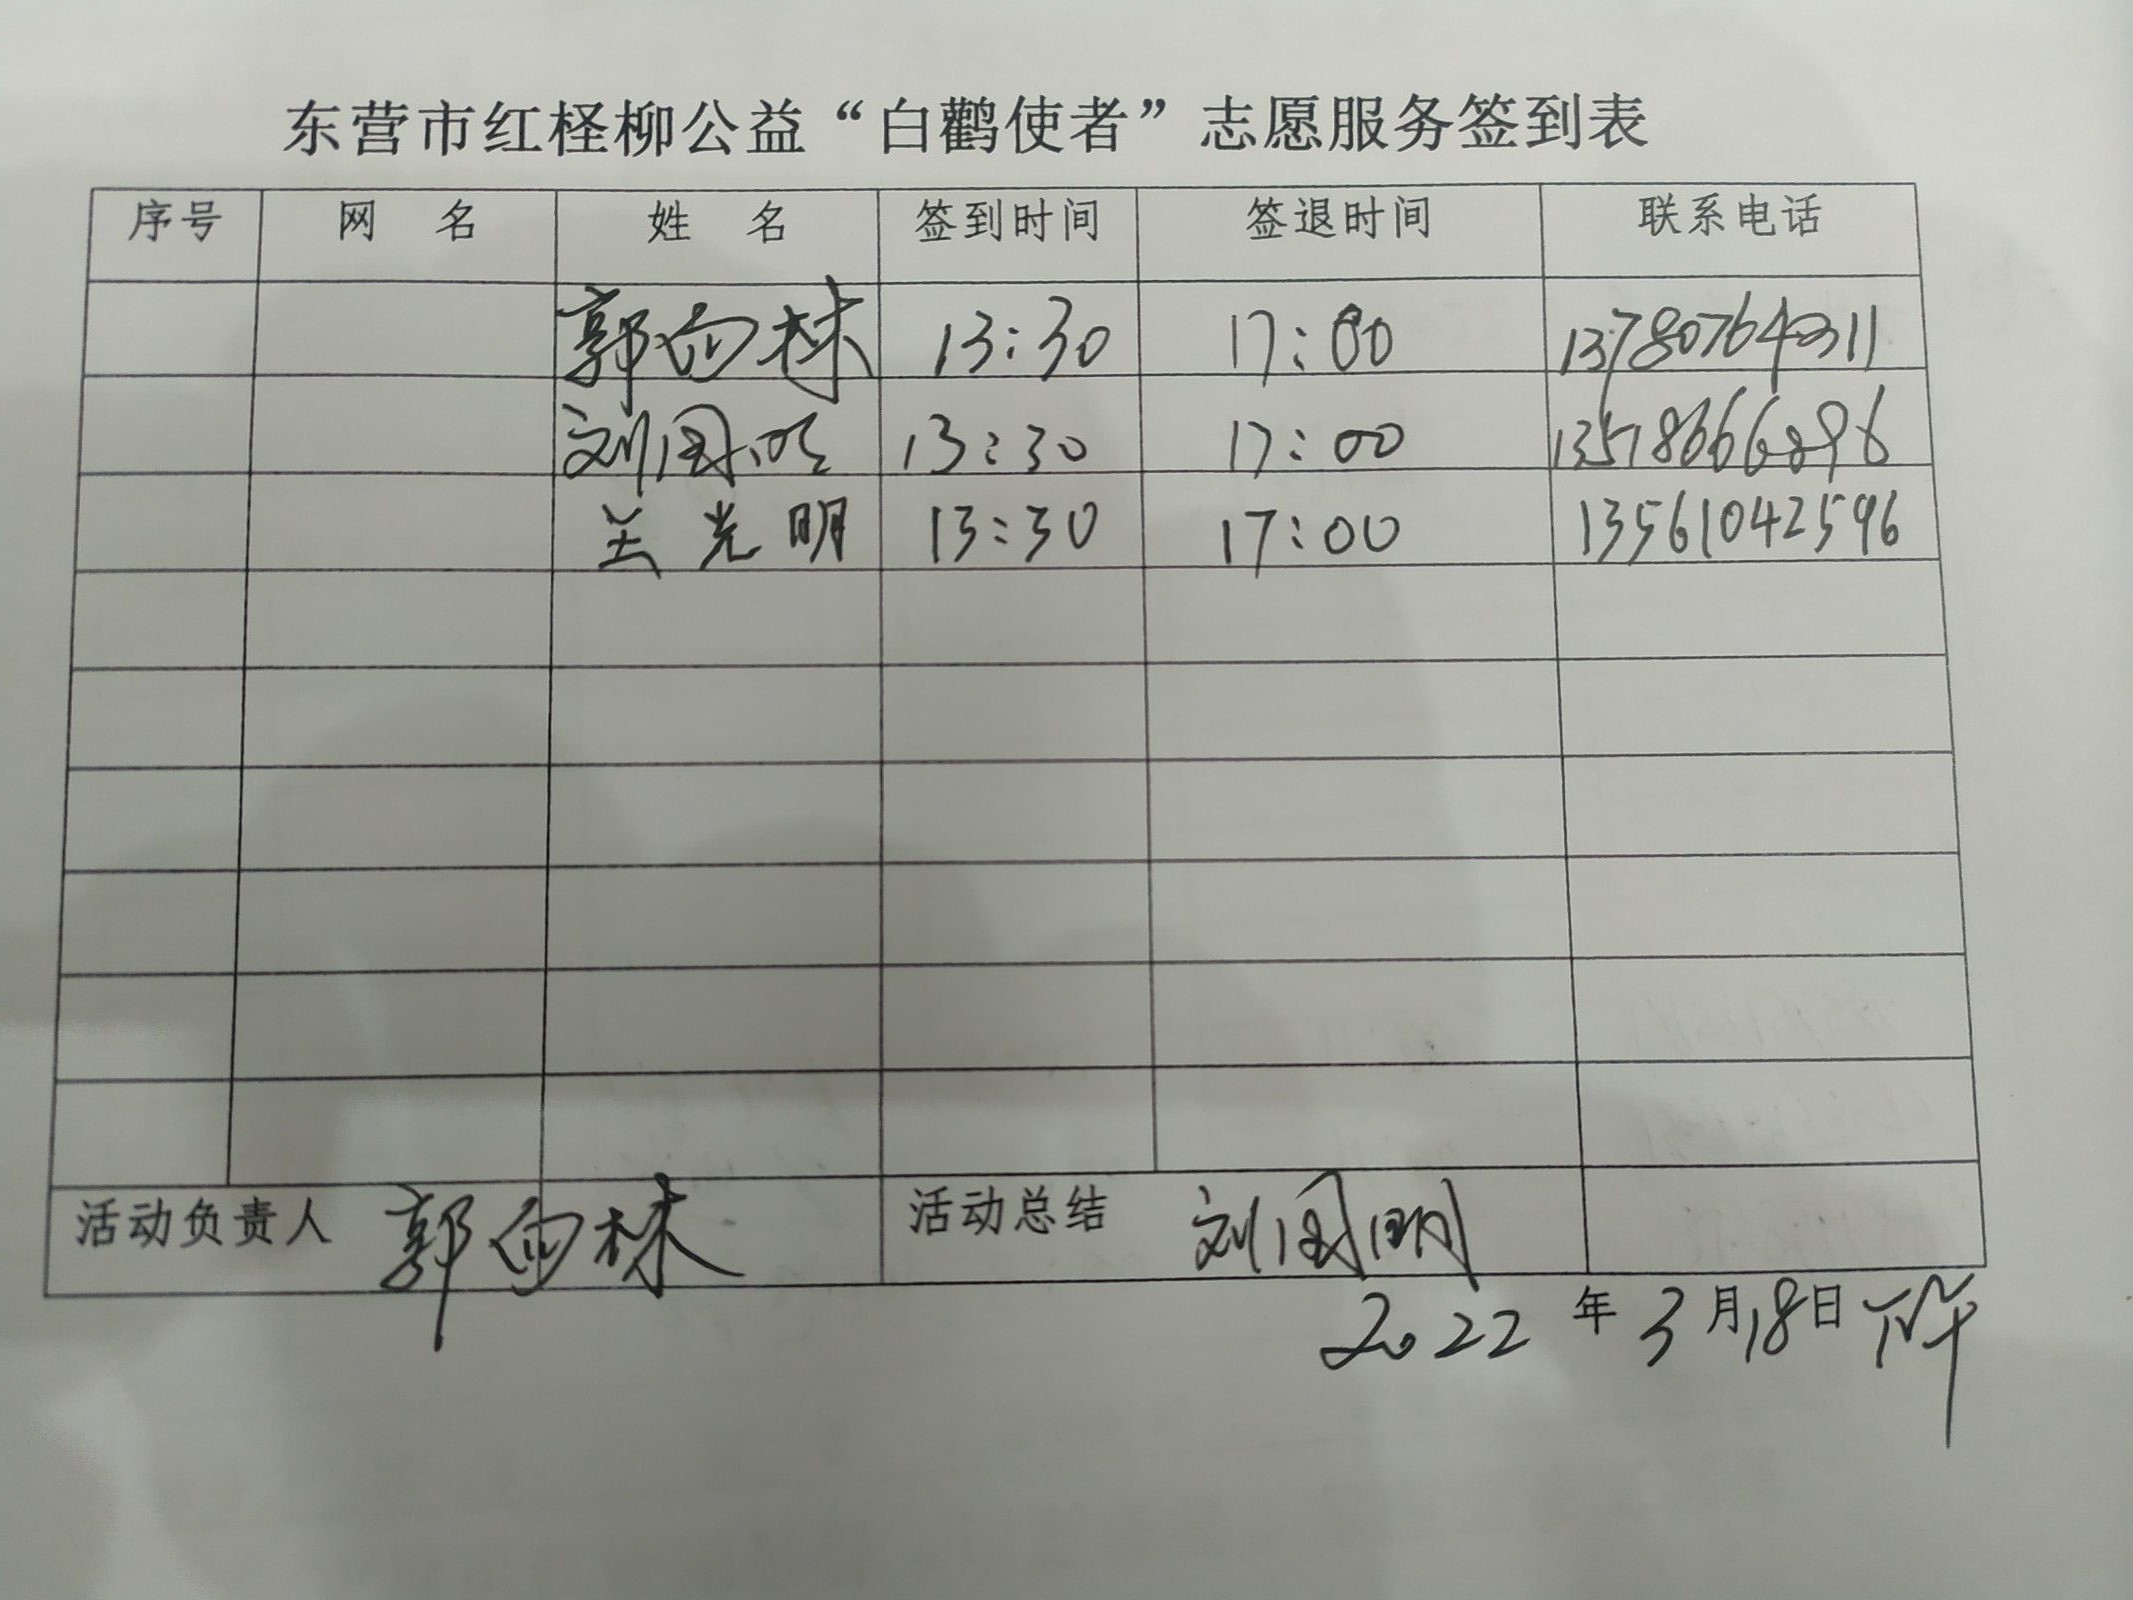 东营市红柽柳公益“白鹳使者”志愿服务签到表
序号 网 名 姓 名 签到时间 签退时间 联系电话
郭向林 13:30 17:00
刘国明 13:30 17:00
兰光明 13:30 17:00 13561042596
活动负责人 郭向林 活动总结 刘国明
2022年3月18日下午